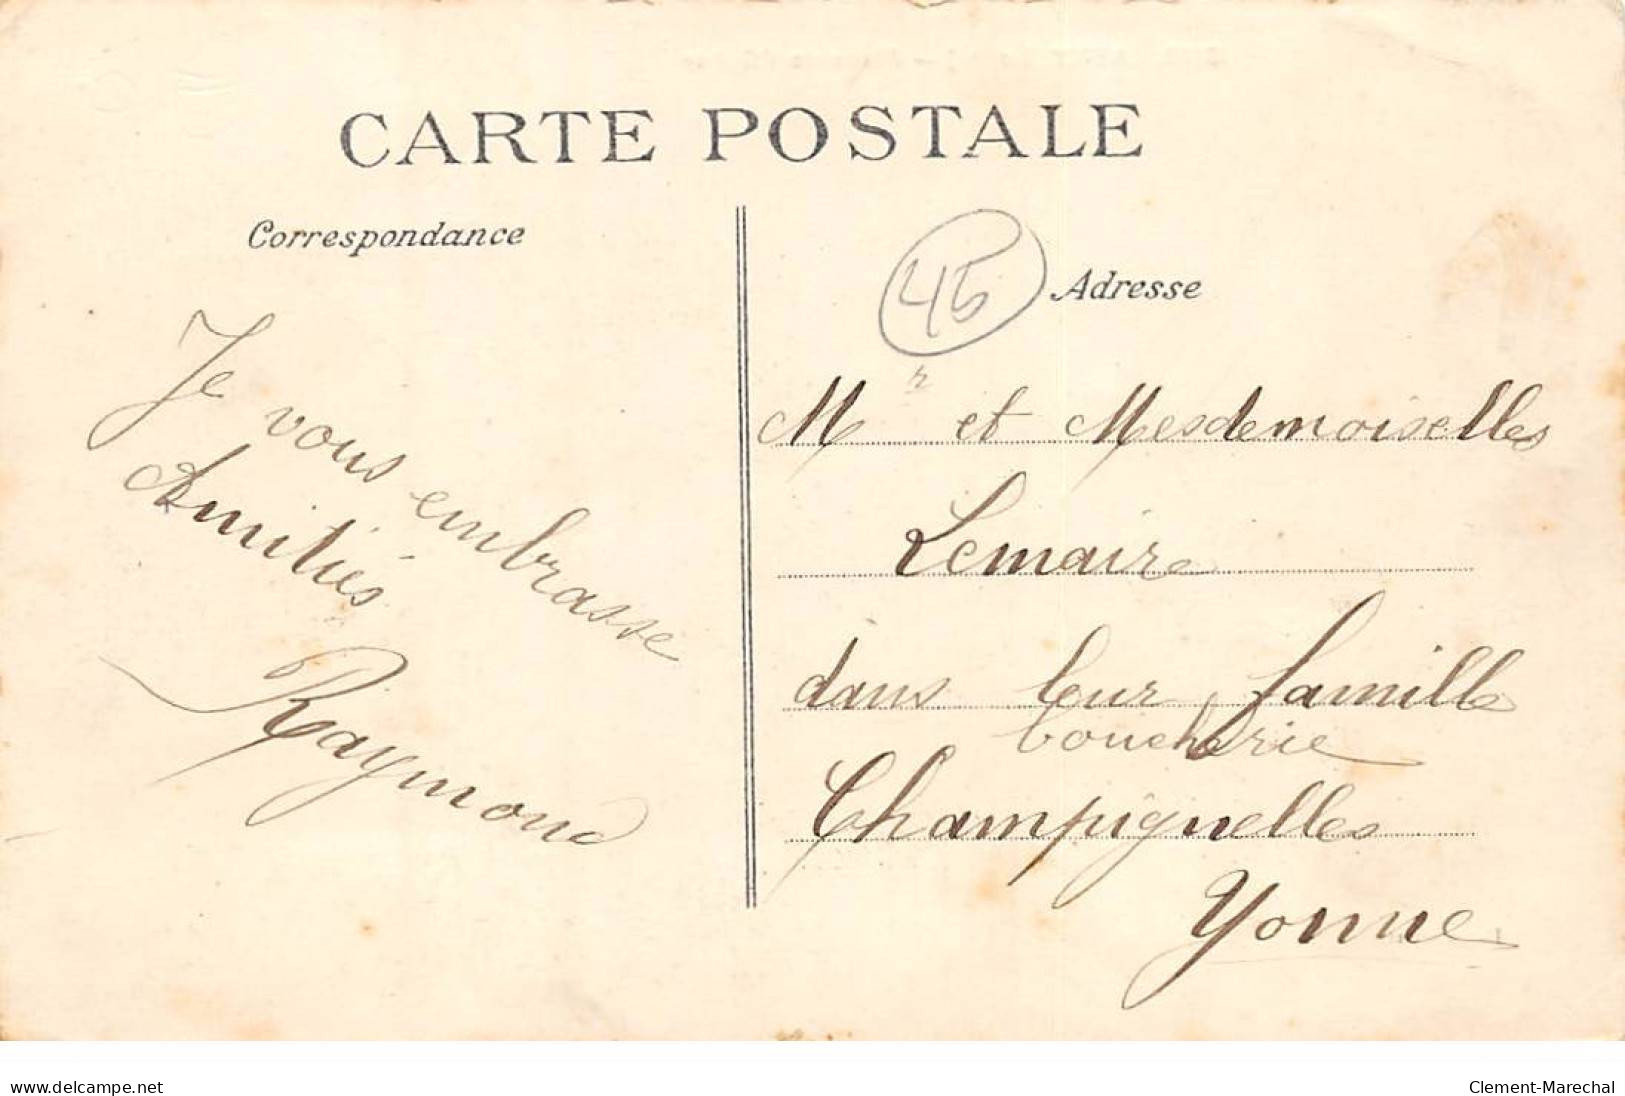 CARTE POSTALE
Correspondance
Je vous embrasse
Amitiés
Raymond
45
Adresse
Mr et Mesdemoiselles
Lemaire
dans leur famille
boucherie
Champignelles
Yonne
www.delcampe.net
Clement-Marechal